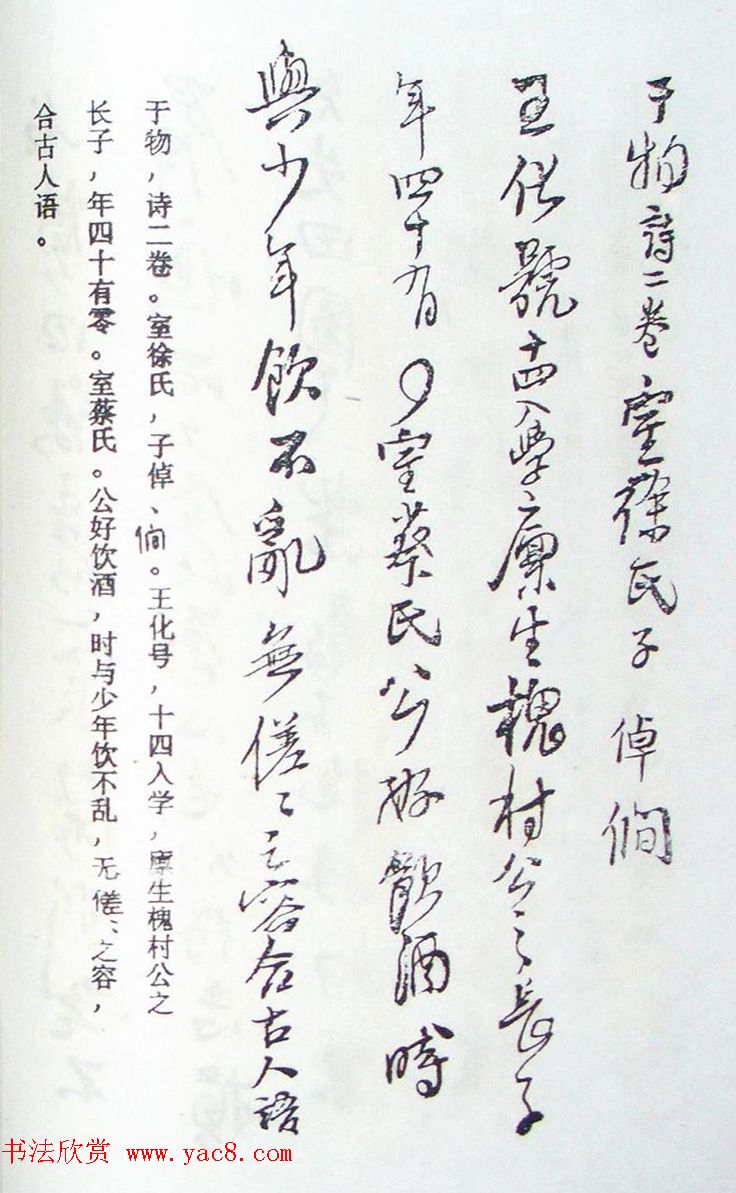 于物詩二卷室徐氏子倬㑮
王化號十四入學廩生槐村公之長子
年四十有〇室蔡氏公好飲酒時
與少年飲不亂無傞〻之容合古人語
于物，诗二卷。室徐氏，子倬、㑮。王化号，十四入学，廪生槐村公之
长子，年四十有零。室蔡氏。公好饮酒，时与少年饮不乱，无傞〻之容，
合古人语。
书法欣赏 www.yac8.com